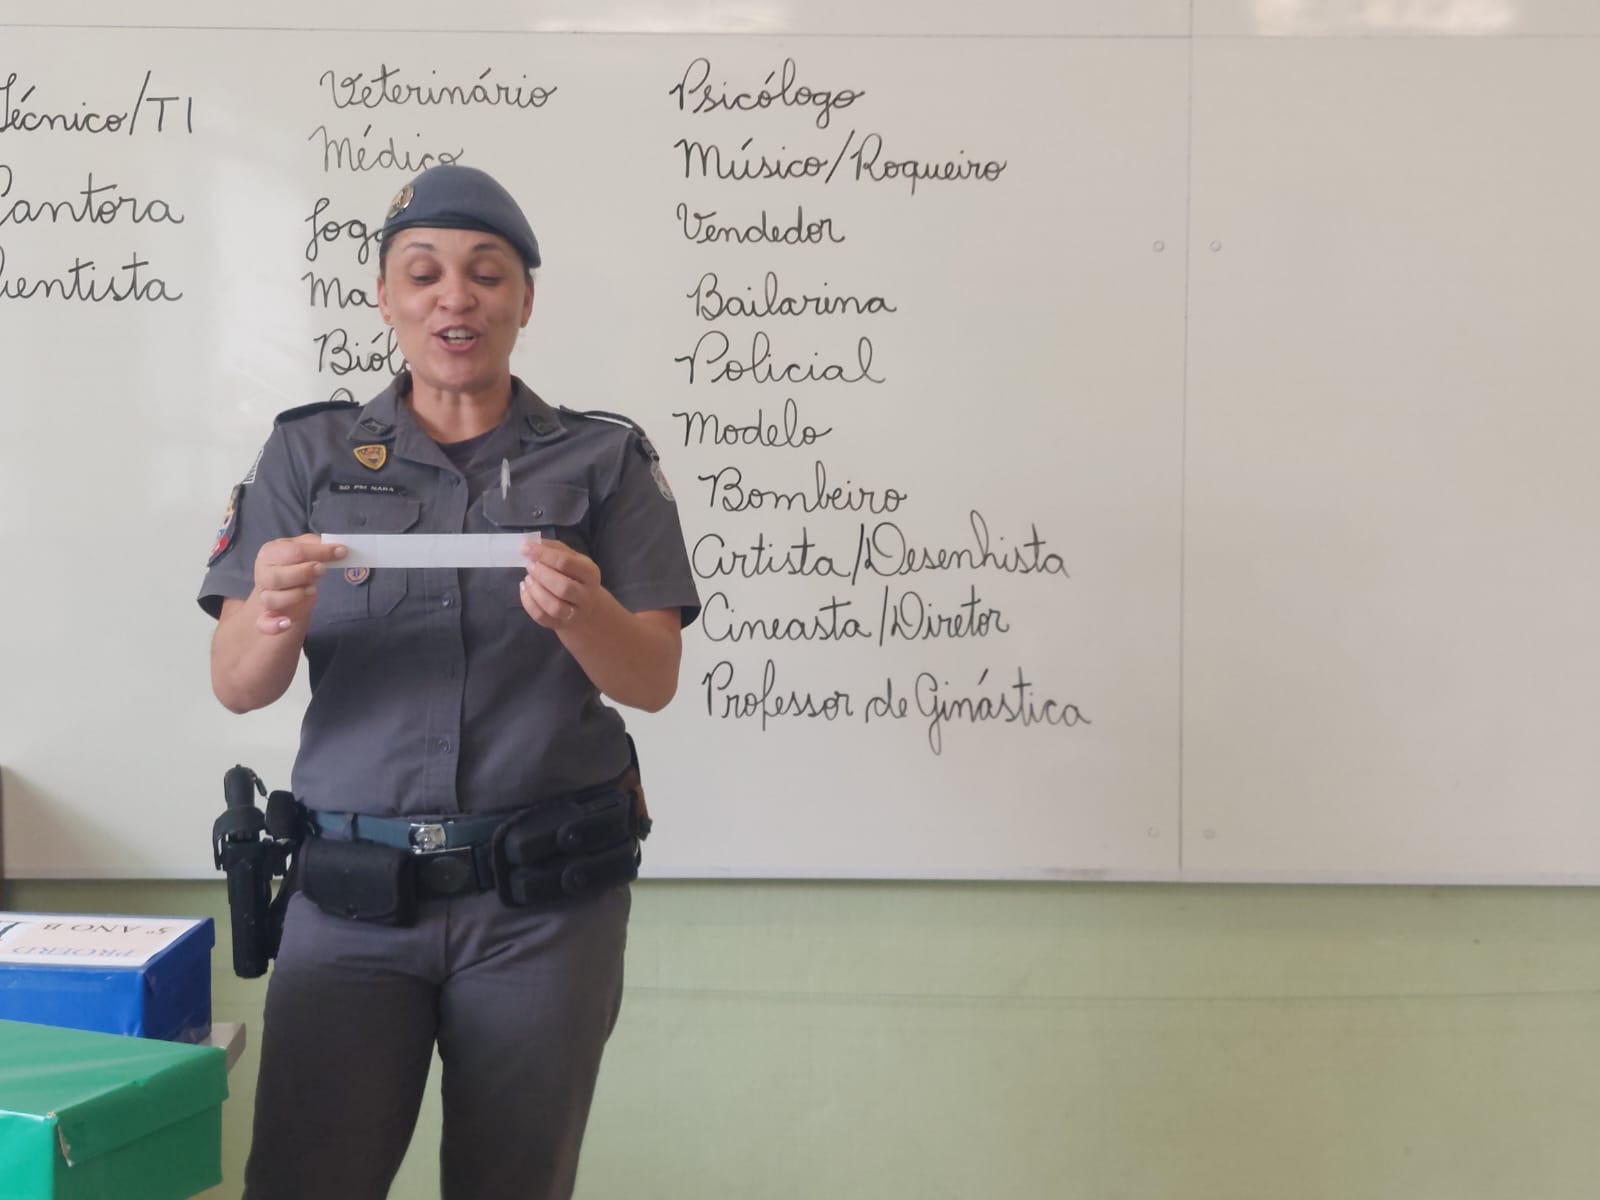 Técnico/TI
Cantora
Veterinário
Médico
Psicólogo
Músico/Roqueiro
Vendedor
Bailarina
Policial
Modelo
Bombeiro
Artista/Desenhista
Cineasta/Diretor
Professor de Ginástica
SD PM NARA
PROERD
5º ANO B